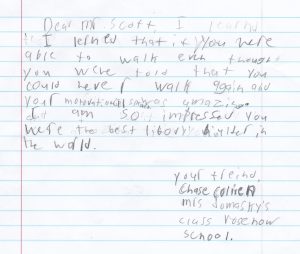 Dear Mr Scott I learned
I lerned that if you were
able to walk even thought
you were told that you
could never walk again and
your motivational was amazing
I am so impressed you
were the best libary bilder in
the world.
your freind,
Chase
Mrs Tomasky's
class Rosenow
School.